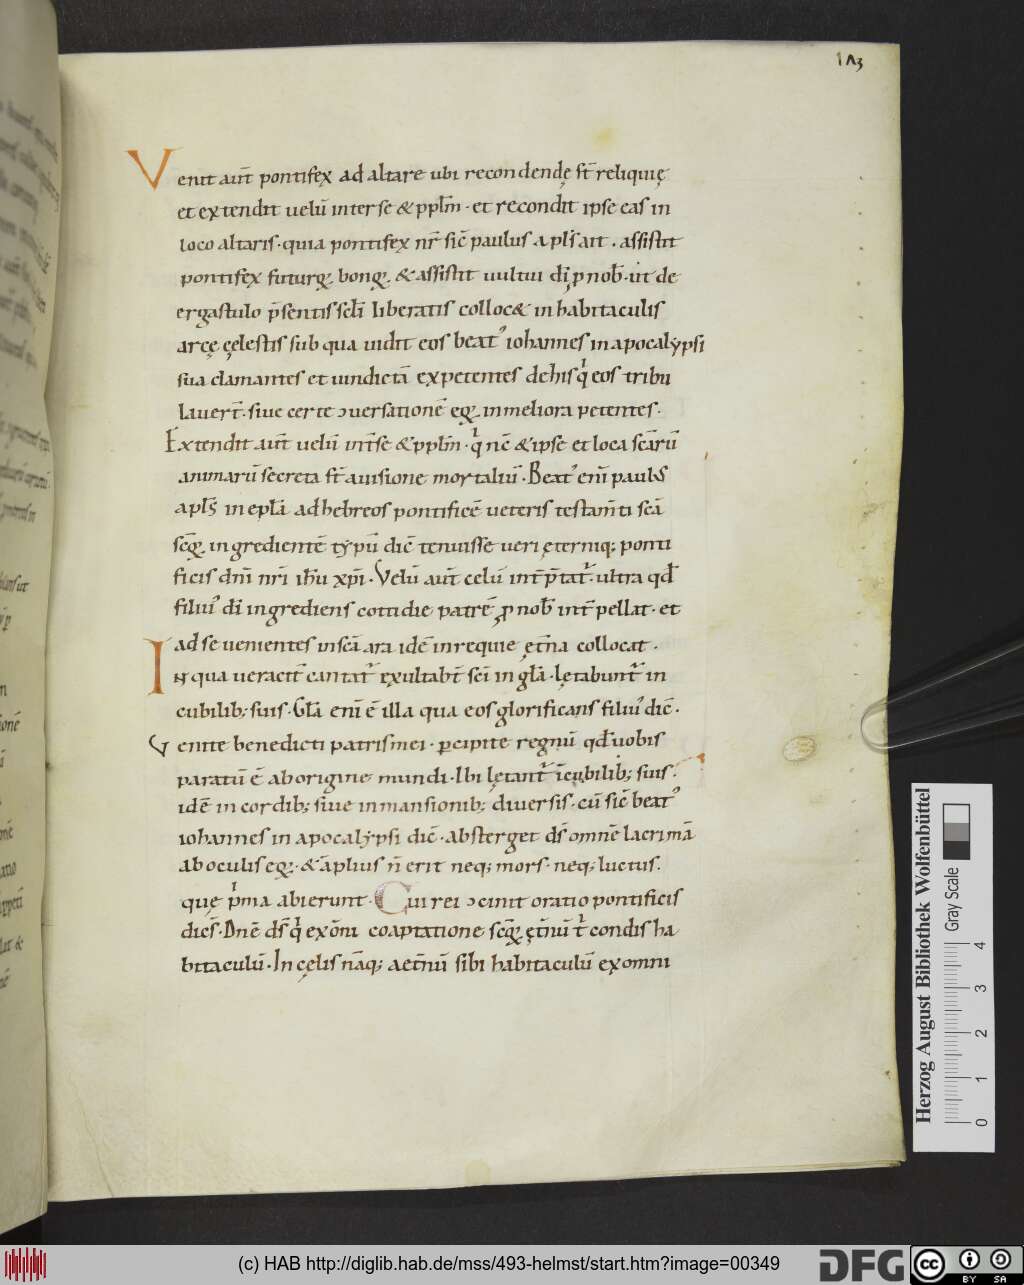 173
Venit aut̄ pontifex ad altare ubi recondendę st̄ reliquię
et extendit uelū inter se & ppl̄m · et recondit ipse eas in
loco altaris · quia pontifex nr̄ sic̄ paulus apl̄s ait · assistit
pontifex futuroꝝ bonoꝝ · & assistit uultui dī ꝓ nob̄ · ut de
ergastulo p̄sentis scl̄i liberatis colloc& in habitaculis
arcę cęlestis sub qua uidit eos beatꝰ iohannes in apocalypsi
sua clamantes et uindictā expetentes de his qͥ eos tribu
lauer̄ · siue certe ɔuersationē eoꝝ in meliora petentes ·
Extendit aut̄ uelū int̄ se & ppl̄m · qͥ nc̄ & ipse et loca scārū
animarū secreta st̄ a uisione mortaliū · Beatꝰ eni᷒ paulus
apl̄s in epl̄a ad hebreos pontificē ueteris testam̄ti scā
scōꝝ ingredientē typū dic̄ tenuisse ueri ęterniq; ponti
ficis dn̄i nr̄i ih̄u xp̄i · Velū aut̄ celū int̄p̄tat᷑ · ultra qd̄
filiuꝰ dī ingrediens cottidie patrē ꝓ nob̄ int̄pellat · et
ad se uenientes in scā ara idē in requie ęt̄na collocat ·
IN qua ueracit̄ cantat᷑ exultabt̄ sc̄i in gl̄a · lętabunt᷑ in
cubilib; suis · Gl̄a enī ē illa qua eos glorificans filiuꝰ dic̄ ·
Venite benedicti patris mei · ꝑcipite regnū qd̄ uobis
paratū ē ab origine mundi · Ibi lętant᷑ ī cubilib; suis ·
idē in cordib; siue in mansionib; diuersis · cū sic̄ beatꝰ
iohannes in apocalypsi dic̄ · absterget ds̄ omnē lacrimā
ab oculis eoꝝ · & āplius n̄ erit neq; mors · neq; luctus ·
quę pͥma abierunt · Cui rei ɔcinit oratio pontificis
dices̄ · Dn̄e ds̄ qͥ ex om̄i coaptatione scōꝝ ęt̄nū tͥ condis ha
bitaculū · In cęlis nāq; aet̄nū sibi habitaculū ex omni
Herzog August Bibliothek Wolfenbüttel
Gray Scale
0 1 2 3 4
(c) HAB http://diglib.hab.de/mss/493-helmst/start.htm?image=00349
DFG
cc BY SA